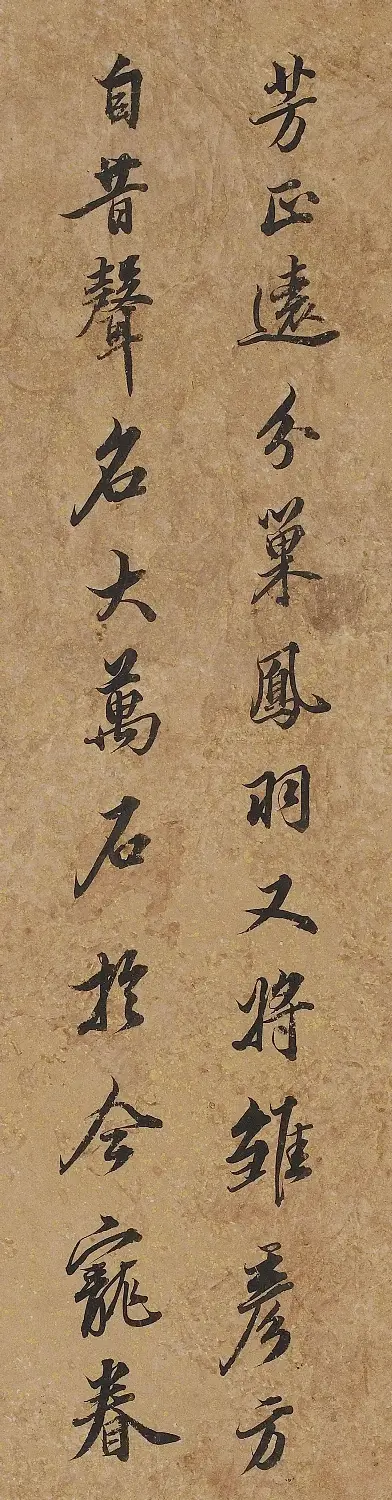 芳正遠分巢鳳羽又將雛彥方
自昔聲名大萬石於今寵眷